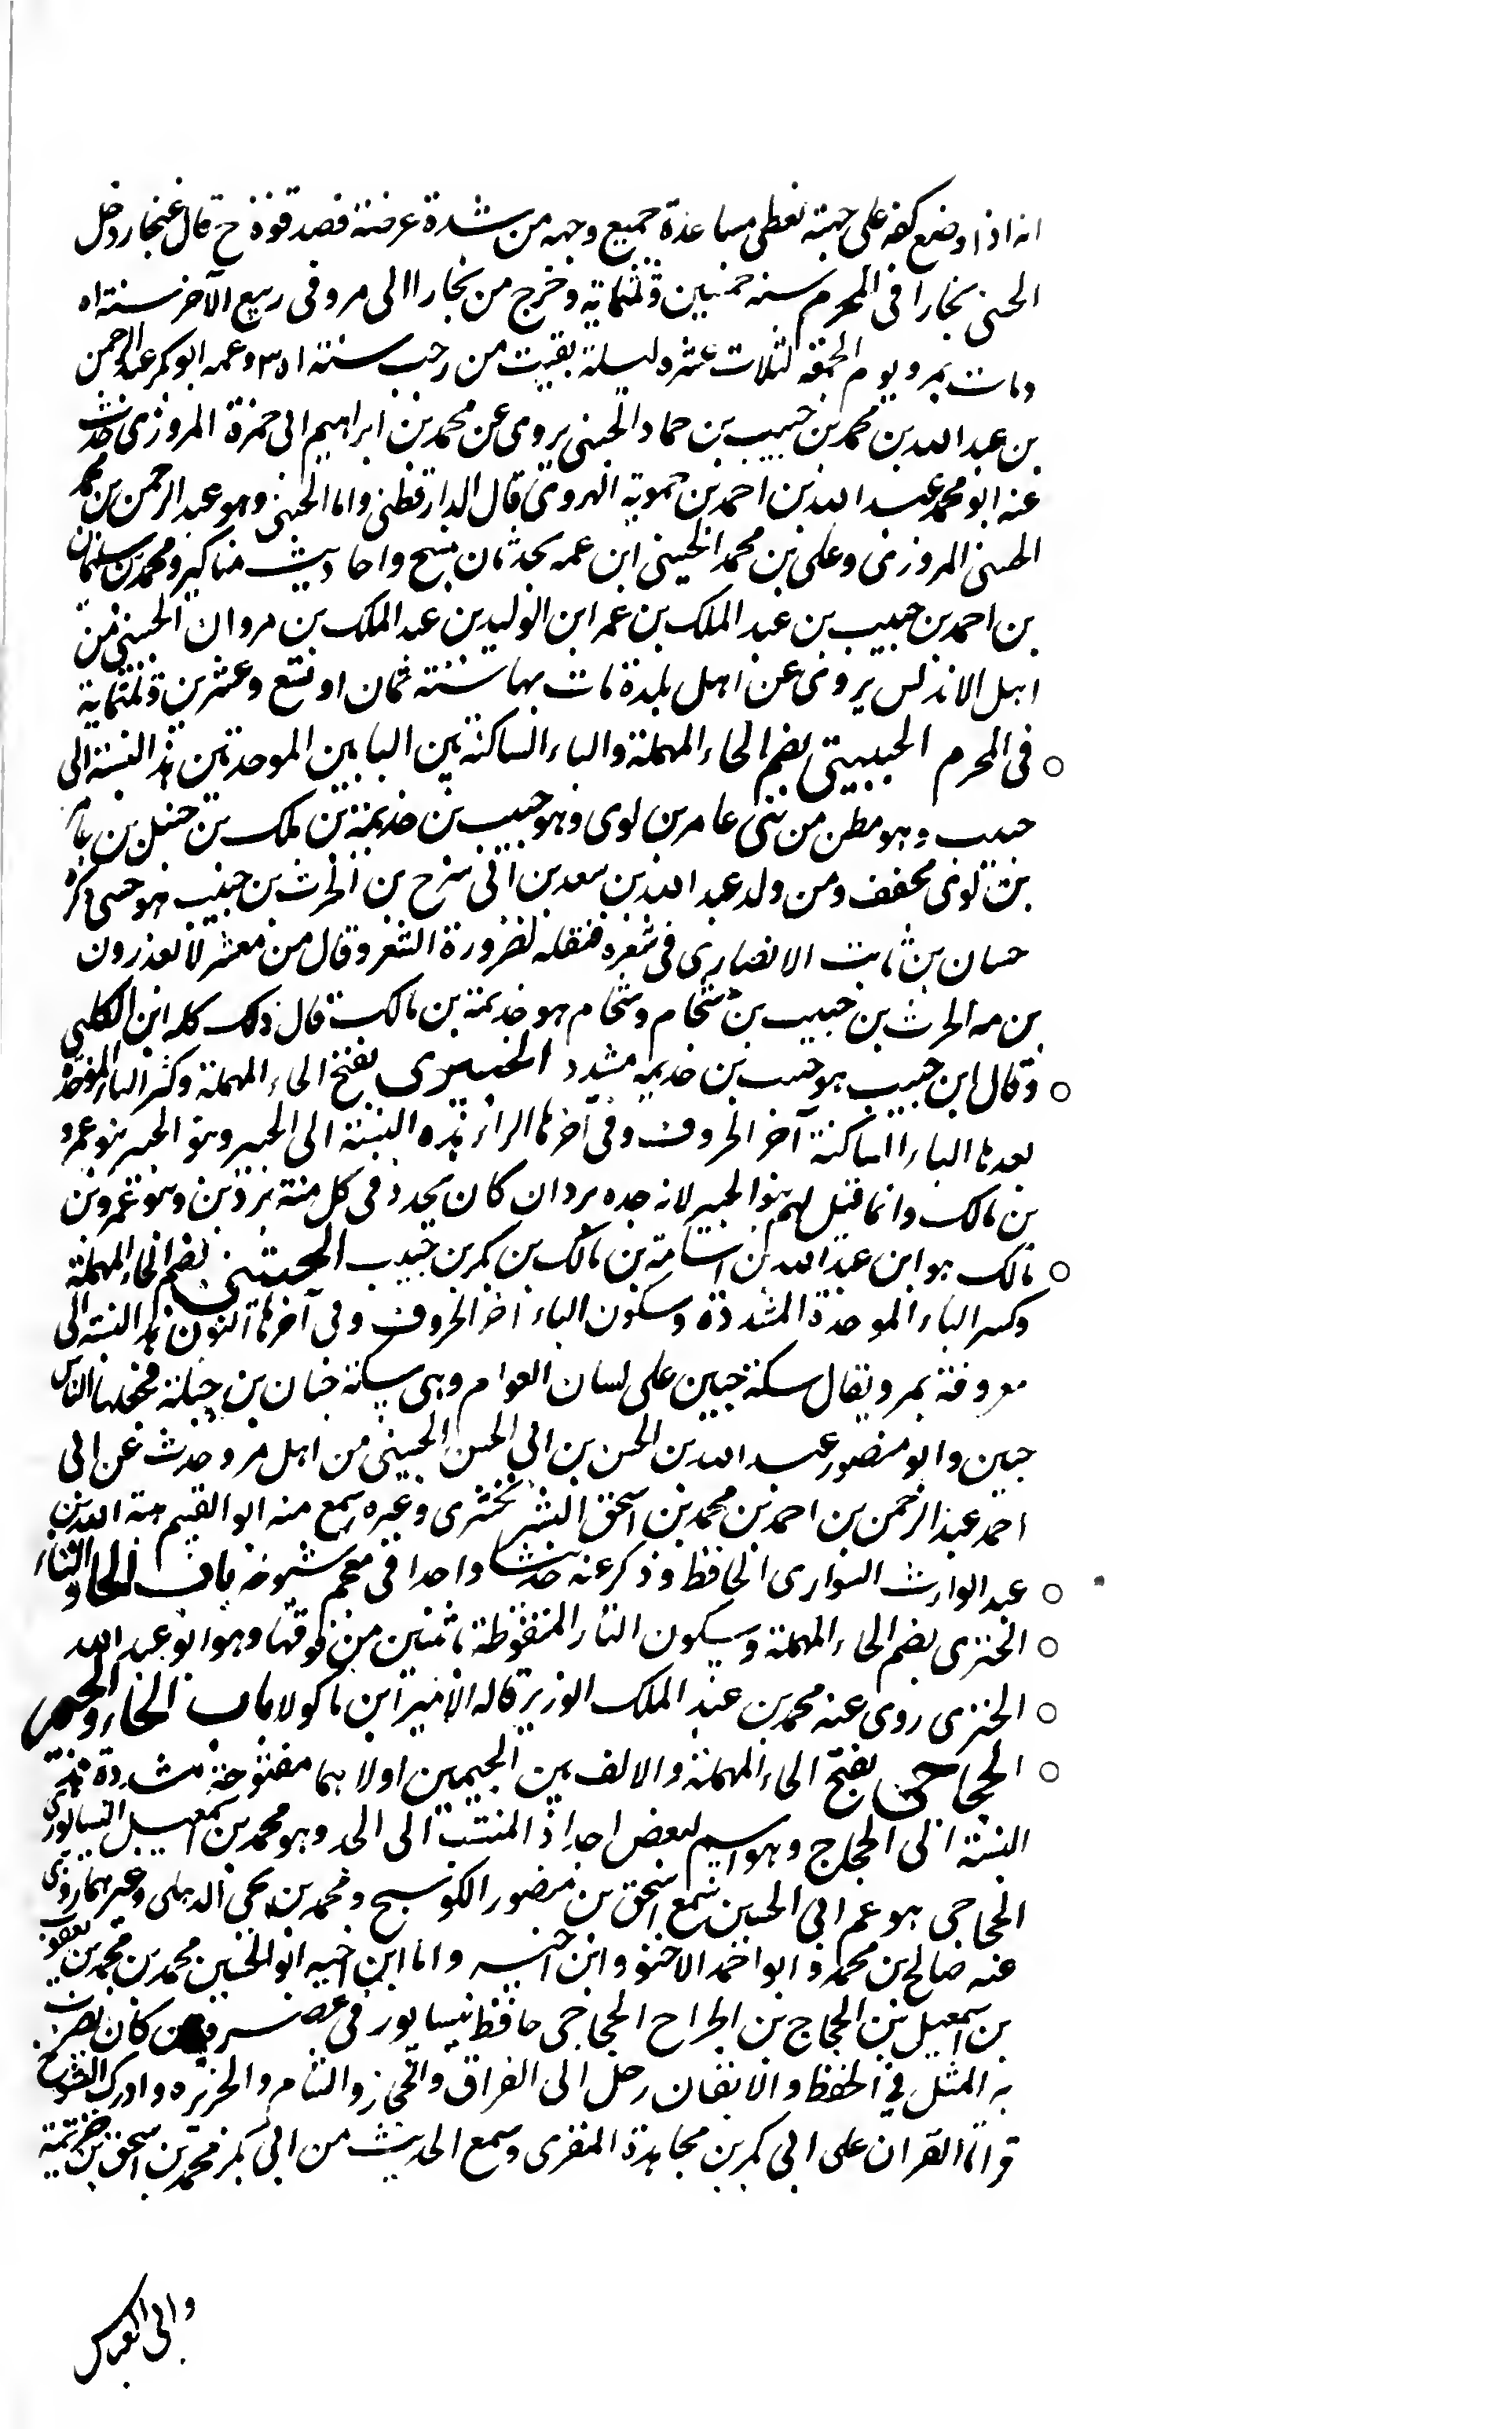 انه اذا وضع كفه على جبهته تغطى مساعدة جميع وجهه من شدة عرضه فصدقوه ح قال غنجار دخل
الحبنى بخارا فى المحرم سنه خمسين وثلثماية وخرج من بخارا الى مرو فى ربيع الآخر سنة اه
ومات بمرو يوم الجمعة لثلاث عشره ليلة بقيت من رجب سنة ٣٥١ وعمه ابو بكر عبد الرحمن
بن عبد الله بن محمد بن حبيب بن حماد الحبينى يروى عن محمد بن ابراهيم ابى حمزة المروزى حدث
عنه ابو محمد عبد الله بن احمد بن حمويه الهروى قال الدارقطنى واما الحبينى وهو عبد الرحمن بن محمد
الحبينى المروزى وعلى بن محمد الحبينى ابن عمه يحدثان بنسخ واحاديث مناكير ومحمد بن سليمان
بن احمد بن حبيب بن عبد الملك بن عمر ابن الوليد بن عبد الملك بن مروان الحبيبى من
اهل الاندلس يروى عن اهل بلده مات بها سنة ثمان او تسع وعشرين وثلثماية
فى المحرم الحبيبى بضم الحاء المهملة والياء الساكنة بين البابين الموحدتين هذه النسبة الى
حبيب وهو بطن من بنى عامر بن لوى وهو حبيب بن خذيمة بن ملك بن حنبل بن عامر
بن لوى مخفف ومن ولده عبد الله بن سعد بن ابى سرح بن الحرث بن حبيب هو حى ذكره
حسان بن ثابت الانصارى فى شعره فثقله لضرورة الشعر وقال من معشر لا يغدرون
بن مه الحرث بن حبيب بن شخام وشخام هو خذيمة بن مالك قال ذلك كله ابن الكلبى
وقال ابن حبيب هو حبيب بن خذيمه مشدد الحبيرى بفتح الحاء المهملة وكسر الباء الموحدة
بعدها الياء الساكنة آخر الحروف وفى آخرها الراء هذه النسبة الى الحبير وبنو الحبير بنو عمرو
بن مالك وانما قيل لهم بنو الحبير لانه جده بردان كان يجدد فى كل سنة بردين وهو عمرو بن
مالك هو ابن عبد الله بن اسامة بن مالك بن بكر بن حبيب الحبينى بضم الحاء المهملة
وكسر الباء الموحدة المشددة وسكون الياء آخر الحروف وفى آخرها النون هذه النسبة الى
معروفة بمرو يقال سكة حبين على لسان العوام وهى سكة حبان بن جبلة فجعلها الناس
حبين وابو منصور عبد الله بن الحسن بن ابى الحسن الحبينى من اهل مرو حدث عن ابى
احمد عبد الرحمن بن احمد بن محمد بن اسحق الشيرنخشيرى وغيره سمع منه ابو القسم هبة الله بن
عبد الوارث السوارى الحافظ وذكر عنه حديثا واحدا فى معجم شيوخه باب الحاء والتاء
الحترى بضم الحاء المهملة وسكون التاء المنقوطة باثنين من فوقها وهو ابو عبد الله
الحترى روى عنه محمد بن عبد الملك الوزير قاله الامير ابن ماكولا باب الحاء والجيم
الحجاجى بفتح الحاء المهملة والالف بين الجيمين اولاهما مفتوحة مشددة هذه
النسبة الى الحجاج وهو اسم لبعض اجداد المنتسب اليه وهو محمد بن اسمعيل النيسابورى
الحجاجى هو عم ابى الحسين سمع اسحق بن منصور الكوسج ومحمد بن يحيى الذهلى وغيرهما روى
عنه صالح بن محمد و ابو احمد الاحنف وابن اخيه واما ابن اخيه ابو الحسين محمد بن محمد بن يعقوب
بن اسمعيل بن الحجاج بن الجراح الحجاجى حافظ نيسابور فى عصره ومن كان يضرب
به المثل فى الحفظ والاتقان رحل الى العراق والحجاز والشام والجزيره وادرك الشيوخ
قرأ القرآن على ابى بكر بن مجاهدة المقرى وسمع الحديث من ابى بكر محمد بن اسحق بن خزيمة
وابى العباس